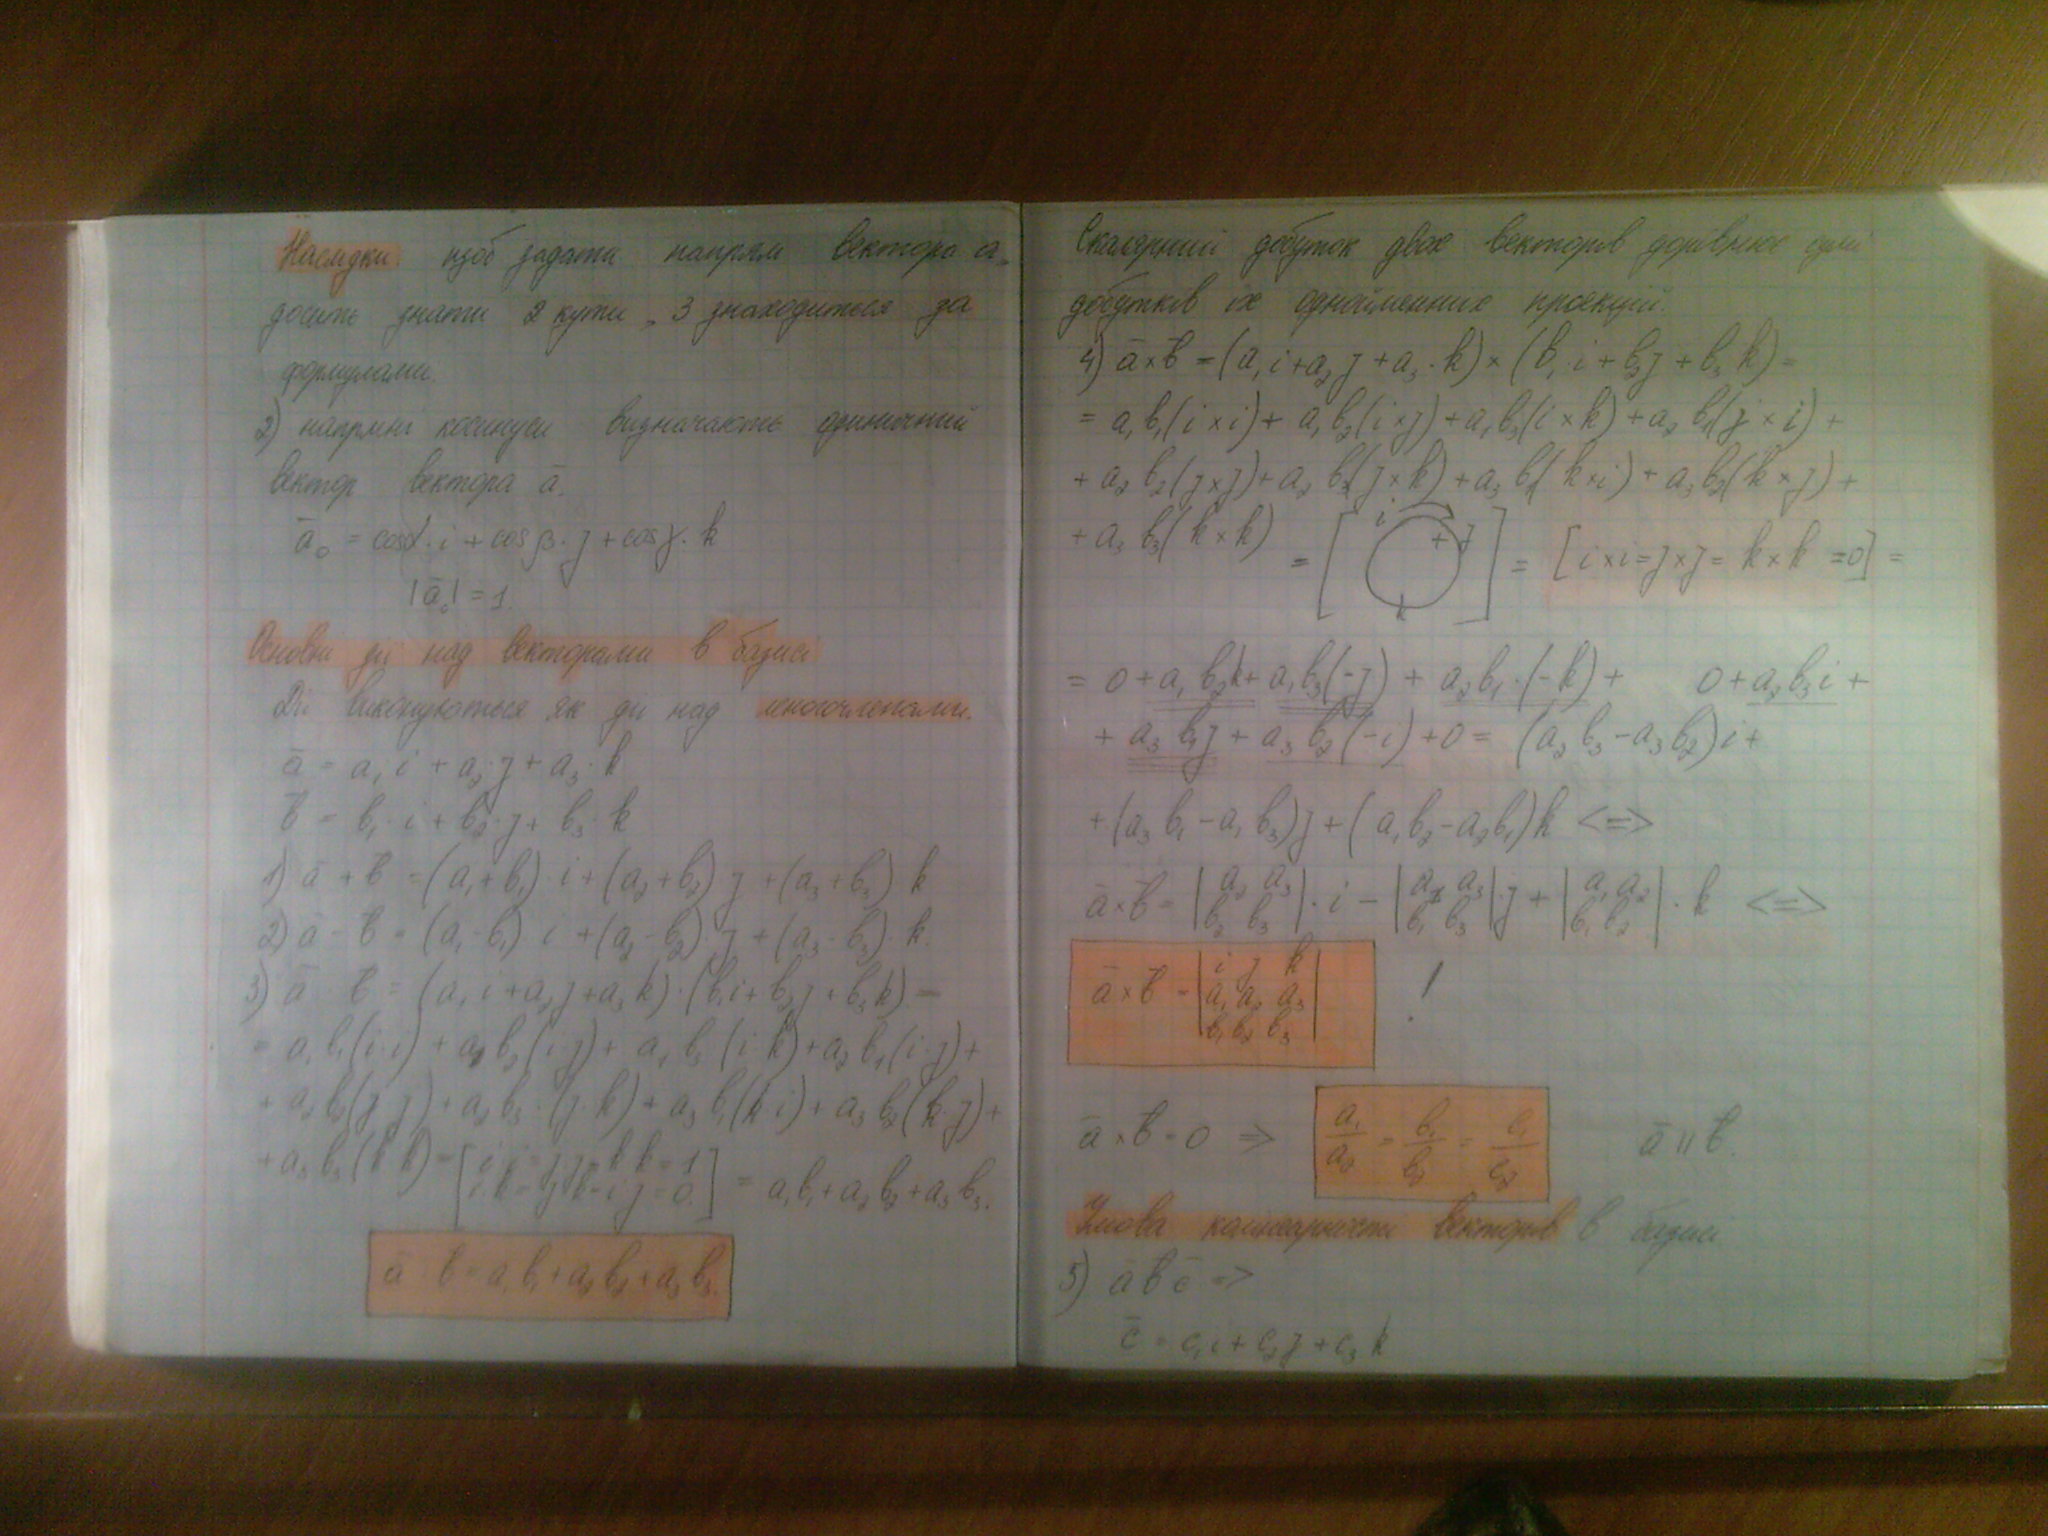 Наслідки: щоб задати напрям вектора a,
досить знати 2 кути, 3 знаходиться за
формулами.
2) напрямні косинуси визначають одиничний
вектор вектора a̅.
a̅₀ = cosα·i + cosβ·j + cosγ·k
|a̅₀| = 1.
Основні дії над векторами в базисі
Дії виконуються як дії над многочленами.
a̅ = a₁i + a₂·j + a₃·k
b̅ = b₁·i + b₂·j + b₃·k
1) a̅ + b̅ = (a₁+b₁)·i + (a₂+b₂)·j + (a₃+b₃)·k
2) a̅ - b̅ = (a₁-b₁)·i + (a₂-b₂)·j + (a₃-b₃)·k.
3) a̅ · b̅ = (a₁i + a₂j + a₃k)·(b₁i + b₂j + b₃k) =
= a₁b₁(i·i) + a₁b₂(i·j) + a₁b₃(i·k) + a₂b₁(i·j) +
+ a₂b₂(j·j) + a₂b₃·(j·k) + a₃b₁(k·i) + a₃b₂(k·j) +
+ a₃b₃(k·k) = [i·i = j·j = k·k = 1
i·k = j·k = i·j = 0.] = a₁b₁ + a₂b₂ + a₃b₃.
a̅ · b̅ = a₁b₁ + a₂b₂ + a₃b₃.
Скалярний добуток двох векторів дорівнює сумі
добутків їх однойменних проекцій.
4) a̅×b̅ = (a₁i + a₂j + a₃·k) × (b₁·i + b₂j + b₃k) =
= a₁b₁(i×i) + a₁b₂(i×j) + a₁b₃(i×k) + a₂b₁(j×i) +
+ a₂b₂(j×j) + a₂b₃(j×k) + a₃b₁(k×i) + a₃b₂(k×j) +
+ a₃b₃(k×k) = [i + j k] = [i×i = j×j = k×k = 0] =
= 0 + a₁b₂k + a₁b₃(-j) + a₂b₁·(-k) + 0 + a₂b₃i +
+ a₃b₁j + a₃b₂(-i) + 0 = (a₂b₃ - a₃b₂)i +
+ (a₃b₁ - a₁b₃)j + (a₁b₂ - a₂b₁)k <=>
a̅×b̅ = |a₂ a₃; b₂ b₃|·i - |a₁ a₃; b₁ b₃|·j + |a₁ a₂; b₁ b₂|·k <=>
a̅×b̅ = |i j k; a₁ a₂ a₃; b₁ b₂ b₃| !
a̅×b̅ = 0 => a₁/a₂ = b₁/b₂ = c₁/c₂ a̅ || b̅.
Умова колінеарності векторів в базисі
5) a̅ b̅ c̅ =>
c̅ = c₁i + c₂j + c₃k